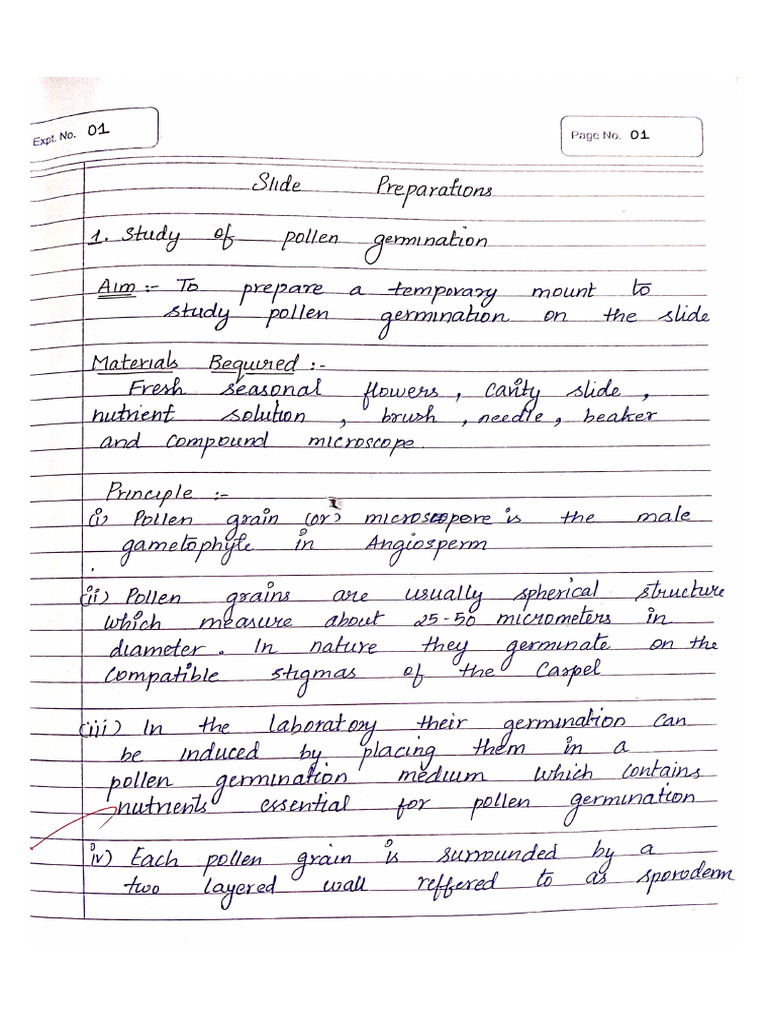 Expt. No. 01
Page No. 01
Slide Preparations
1. Study of pollen germination
Aim :- To prepare a temporary mount to
study pollen germination on the slide
Materials Required :-
Fresh seasonal flowers, cavity slide,
nutrient solution, brush, needle, beaker
and compound microscope.
Principle :-
(i) Pollen grain (or) microspore is the male
gametophyte in Angiosperm
(ii) Pollen grains are usually spherical structure
which measure about 25-50 micrometers in
diameter. In nature they germinate on the
compatible stigmas of the Carpel
(iii) In the laboratory their germination can
be induced by placing them in a
pollen germination medium which contains
nutrients essential for pollen germination
iv) Each pollen grain is surrounded by a
two layered wall reffered to as sporoderm